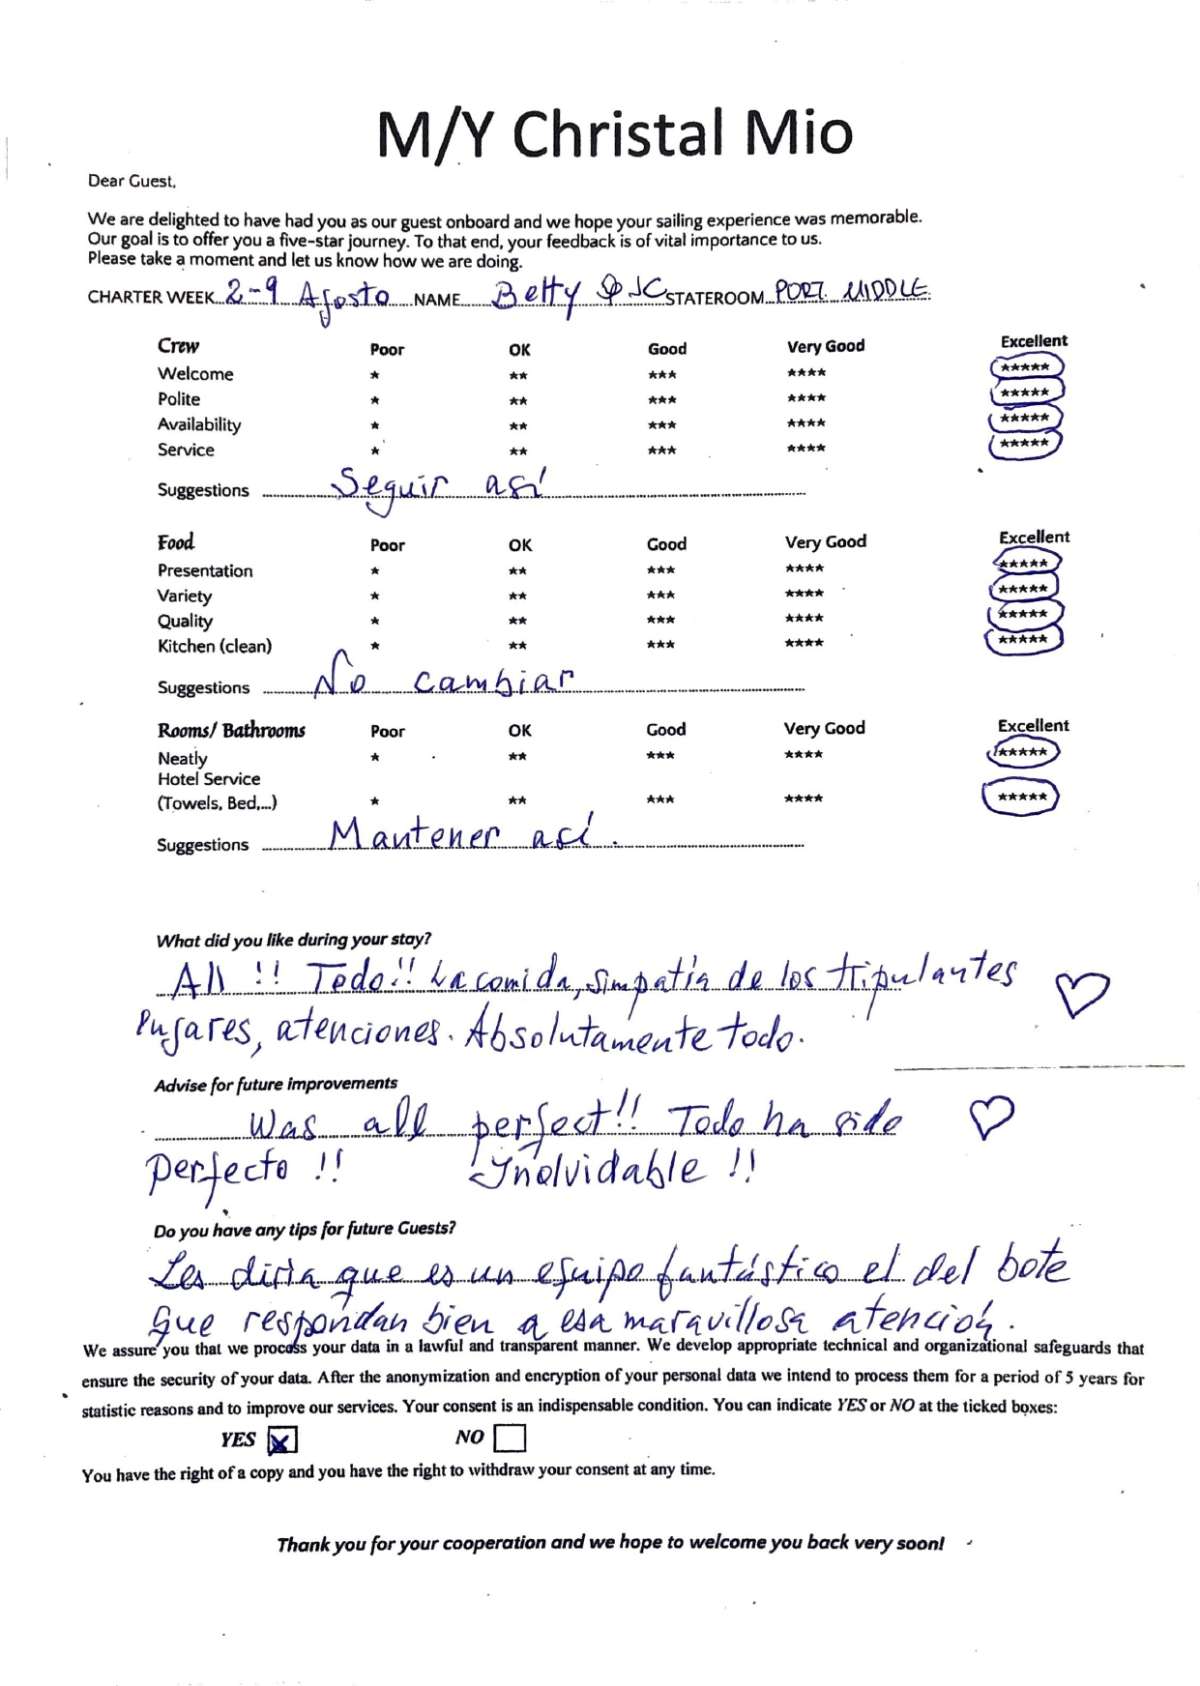 M/Y Christal Mio
Dear Guest,
We are delighted to have had you as our guest onboard and we hope your sailing experience was memorable.
Our goal is to offer you a five-star journey. To that end, your feedback is of vital importance to us.
Please take a moment and let us know how we are doing.
CHARTER WEEK 2-9 Agosto NAME Betty & JC STATEROOM PORT MIDDLE
Crew Poor OK Good Very Good Excellent
Welcome * ** *** **** *****
Polite * ** *** **** *****
Availability * ** *** **** *****
Service * ** *** **** *****
Suggestions Seguir así
Food Poor OK Good Very Good Excellent
Presentation * ** *** **** *****
Variety * ** *** **** *****
Quality * ** *** **** *****
Kitchen (clean) * ** *** **** *****
Suggestions No cambiar
Rooms/ Bathrooms Poor OK Good Very Good Excellent
Neatly * ** *** **** *****
Hotel Service
(Towels, Bed,...) * ** *** **** *****
Suggestions Mantener así.
What did you like during your stay?
All !! Todo!! La comida, simpatía de los tripulantes
lugares, atenciones. Absolutamente todo.
Advise for future improvements
Was all perfect!! Todo ha sido
perfecto !! Inolvidable !!
Do you have any tips for future Guests?
Les diría que es un equipo fantástico el del bote
que respondan bien a esa maravillosa atención.
We assure you that we process your data in a lawful and transparent manner. We develop appropriate technical and organizational safeguards that
ensure the security of your data. After the anonymization and encryption of your personal data we intend to process them for a period of 5 years for
statistic reasons and to improve our services. Your consent is an indispensable condition. You can indicate YES or NO at the ticked boxes:
YES X NO
You have the right of a copy and you have the right to withdraw your consent at any time.
Thank you for your cooperation and we hope to welcome you back very soon!